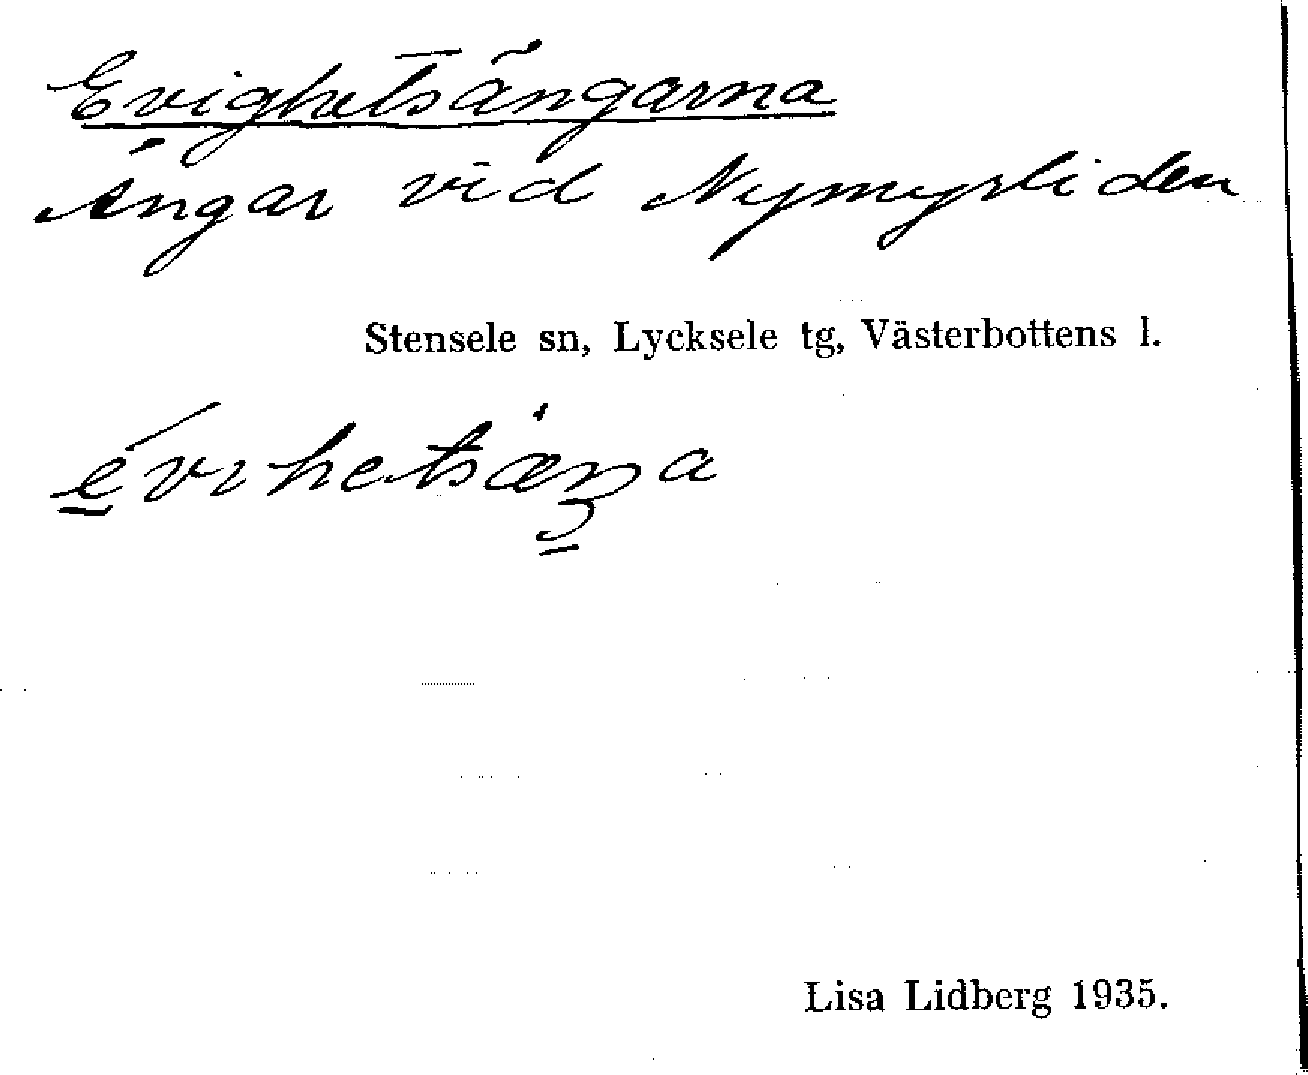 Evighetsängarna
Ängar vid Nymyrliden
Stensele sn, Lycksele tg, Västerbottens l.
évιhetsæŋa
Lisa Lidberg 1935.